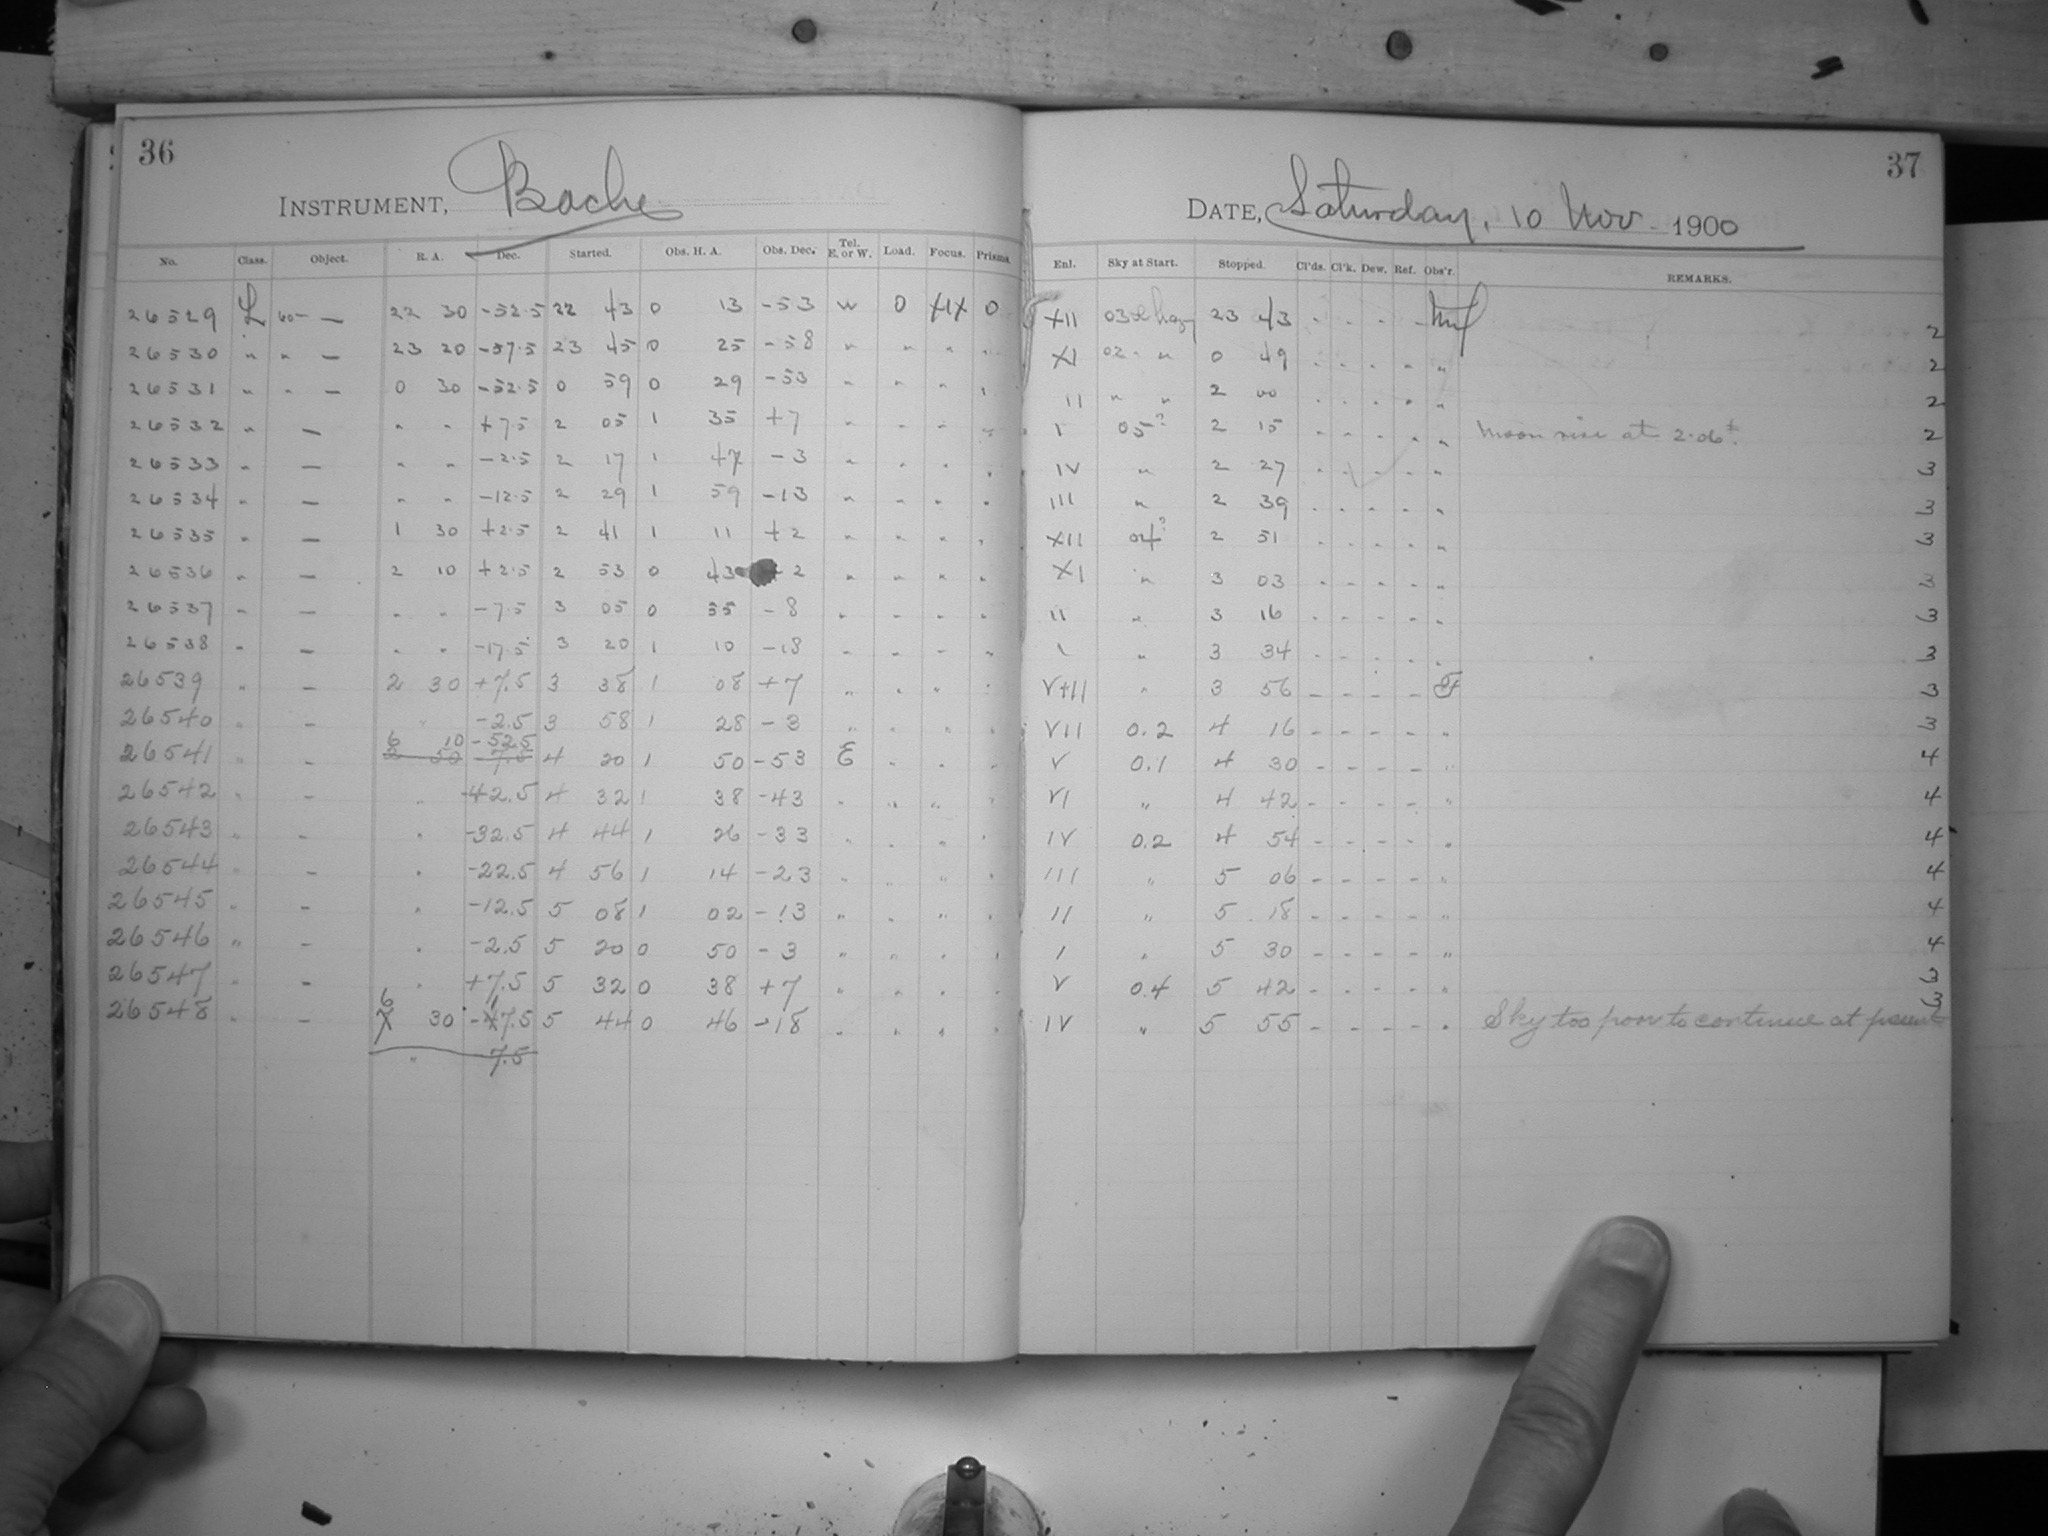 36
INSTRUMENT, Bache
No. Class. Object. R. A. Dec. Started. Obs. H. A. Obs. Dec. Tel. E. or W. Load. Focus. Prisms.
26529 L 60- — 22 30 -52.5 22 43 0 13 -53 W 0 0
26530 " " — 23 20 -57.5 23 45 0 25 -58 " " " "
26531 " " — 0 30 -52.5 0 59 0 29 -53 " " " "
26532 " — " " +7.5 2 05 1 35 +7 " " " "
26533 " — " " -2.5 2 17 1 47 -3 " " " "
26534 " — " " -12.5 2 29 1 59 -13 " " " "
26535 " — 1 30 +2.5 2 41 1 11 +2 " " " "
26536 " — 2 10 +2.5 2 53 0 43 2 " " " "
26537 " — " " -7.5 3 05 0 55 -8 " " " "
26538 " — " " -17.5 3 20 1 10 -18 " " " "
26539 " — 2 30 +7.5 3 38 1 08 +7 " " " "
26540 " — " -2.5 3 58 1 28 -3 " " " "
6 10 -52.5
26541 " — 2 50 -7.5 4 20 1 50 -53 E " " "
26542 " — " -42.5 4 32 1 38 -43 " " " "
26543 " — " -32.5 4 44 1 26 -33 " " " "
26544 " — " -22.5 4 56 1 14 -23 " " " "
26545 " — " -12.5 5 08 1 02 -13 " " " "
26546 " — " -2.5 5 20 0 50 -3 " " " "
26547 " — " +7.5 5 32 0 38 +7 " " " "
26548 " — 6 30 -17.5 5 44 0 46 -18 " " " "
" 7.5
37
DATE, Saturday, 10 Nov. 1900
Enl. Sky at Start. Stopped. Cl'ds. Cl'k. Dew. Ref. Obs'r. REMARKS.
XII 03 23 43 - - - - 2
XI 02 " 0 49 - - - - " 2
II " " 2 00 - - - - " 2
I 05? 2 15 - - - - " Moon rise at 2.06±. 2
IV " 2 27 - - - - " 3
III " 2 39 - - - - " 3
XII 04? 2 51 - - - - " 3
XI " 3 03 - - - - " 3
II " 3 16 - - - - " 3
I " 3 34 - - - - " 3
VIII " 3 56 - - - - F 3
VII 0.2 4 16 - - - - " 3
V 0.1 4 30 - - - - " 4
VI " 4 42 - - - - " 4
IV 0.2 4 54 - - - - " 4
III " 5 06 - - - - " 4
II " 5 18 - - - - " 4
I " 5 30 - - - - " 4
V 0.4 5 42 - - - - " 3
IV " 5 55 - - - - " Sky too poor to continue at present 3